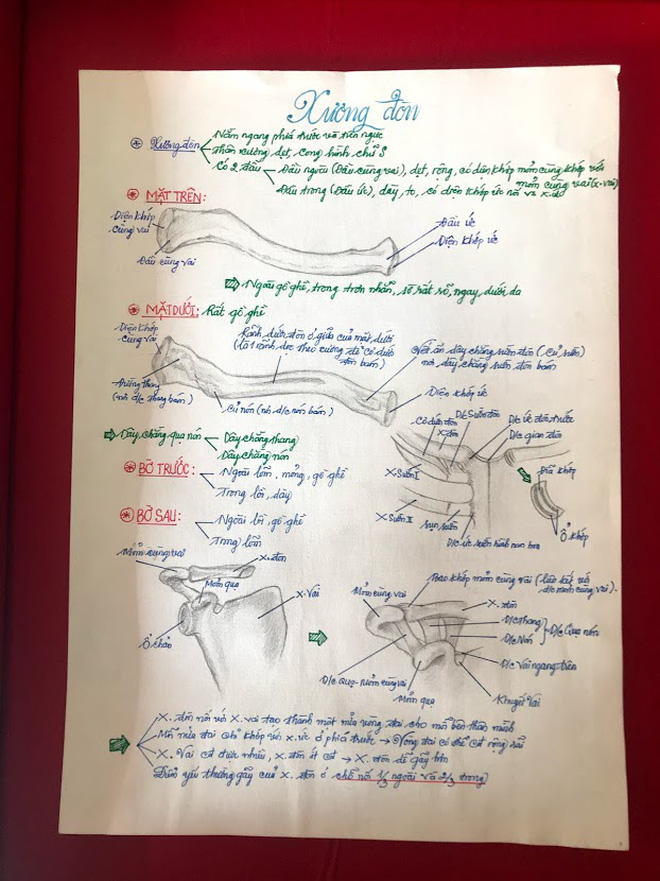 Xương đòn
Xương đòn
Nằm ngang phía trước và trên ngực
Thân xương dẹt, cong hình chữ S
Có 2 đầu
Đầu ngoài (Đầu cùng vai), dẹt, rộng, có diện khớp mỏm cùng khớp với
mỏm cùng vai (x. vai)
Đầu trong (Đầu ức), dày, to, có diện khớp ức nối với x. ức
MẶT TRÊN:
Diện khớp
cùng vai
Đầu cùng vai
Đầu ức
Diện khớp ức
Ngoài gồ ghề, trong trơn nhẵn, sờ rất rõ, ngay dưới da
MẶT DƯỚI: Rất gồ ghề
Diện khớp
cùng vai
Rãnh dưới đòn ở giữa của mặt dưới
(là 1 rãnh dọc theo xương để cơ dưới
đòn bám)
Vết ấn dây chằng sườn đòn (củ sườn)
nơi dây chằng sườn đòn bám
Đường thang
(nơi d/c thang bám)
Củ nón (nơi d/c nón bám)
Diện khớp ức
Dây chằng quạ nón
Dây chằng thang
Dây chằng nón
BỜ TRƯỚC:
Ngoài lõm, mỏng, gồ ghề
Trong lồi, dày
BỜ SAU:
Ngoài lồi, gồ ghề
Trong lõm
Cơ dưới đòn
X. đòn
D/c Sườn đòn
D/c ức đòn trước
D/c gian đòn
X. Sườn I
X. Sườn II
Sụn sườn
D/c ức sườn hình nan hoa
Đĩa khớp
Ổ khớp
Mỏm cùng vai
X. đòn
Mỏm quạ
X. Vai
Ổ chảo
Mỏm cùng vai
Bao khớp mỏm cùng vai (liên kết với
d/c mỏm cùng vai).
X. đòn
D/c thang
D/c Nón
D/c Quạ nón
D/c Vai ngang trên
Khuyết Vai
D/c Quạ-Mỏm cùng vai
Mỏm quạ
X. đòn nối với X. vai tạo thành một nửa vòng đai cho mỗi bên thân mình
Mỗi nửa đai chỉ khớp với X. ức ở phía trước → Vòng đai có thể cử rộng rãi
X. Vai cử được nhiều, X. đòn ít cử → X. đòn dễ gãy hơn
Điểm yếu thường gãy của X. đòn ở chỗ nối 1/3 ngoài và 2/3 trong